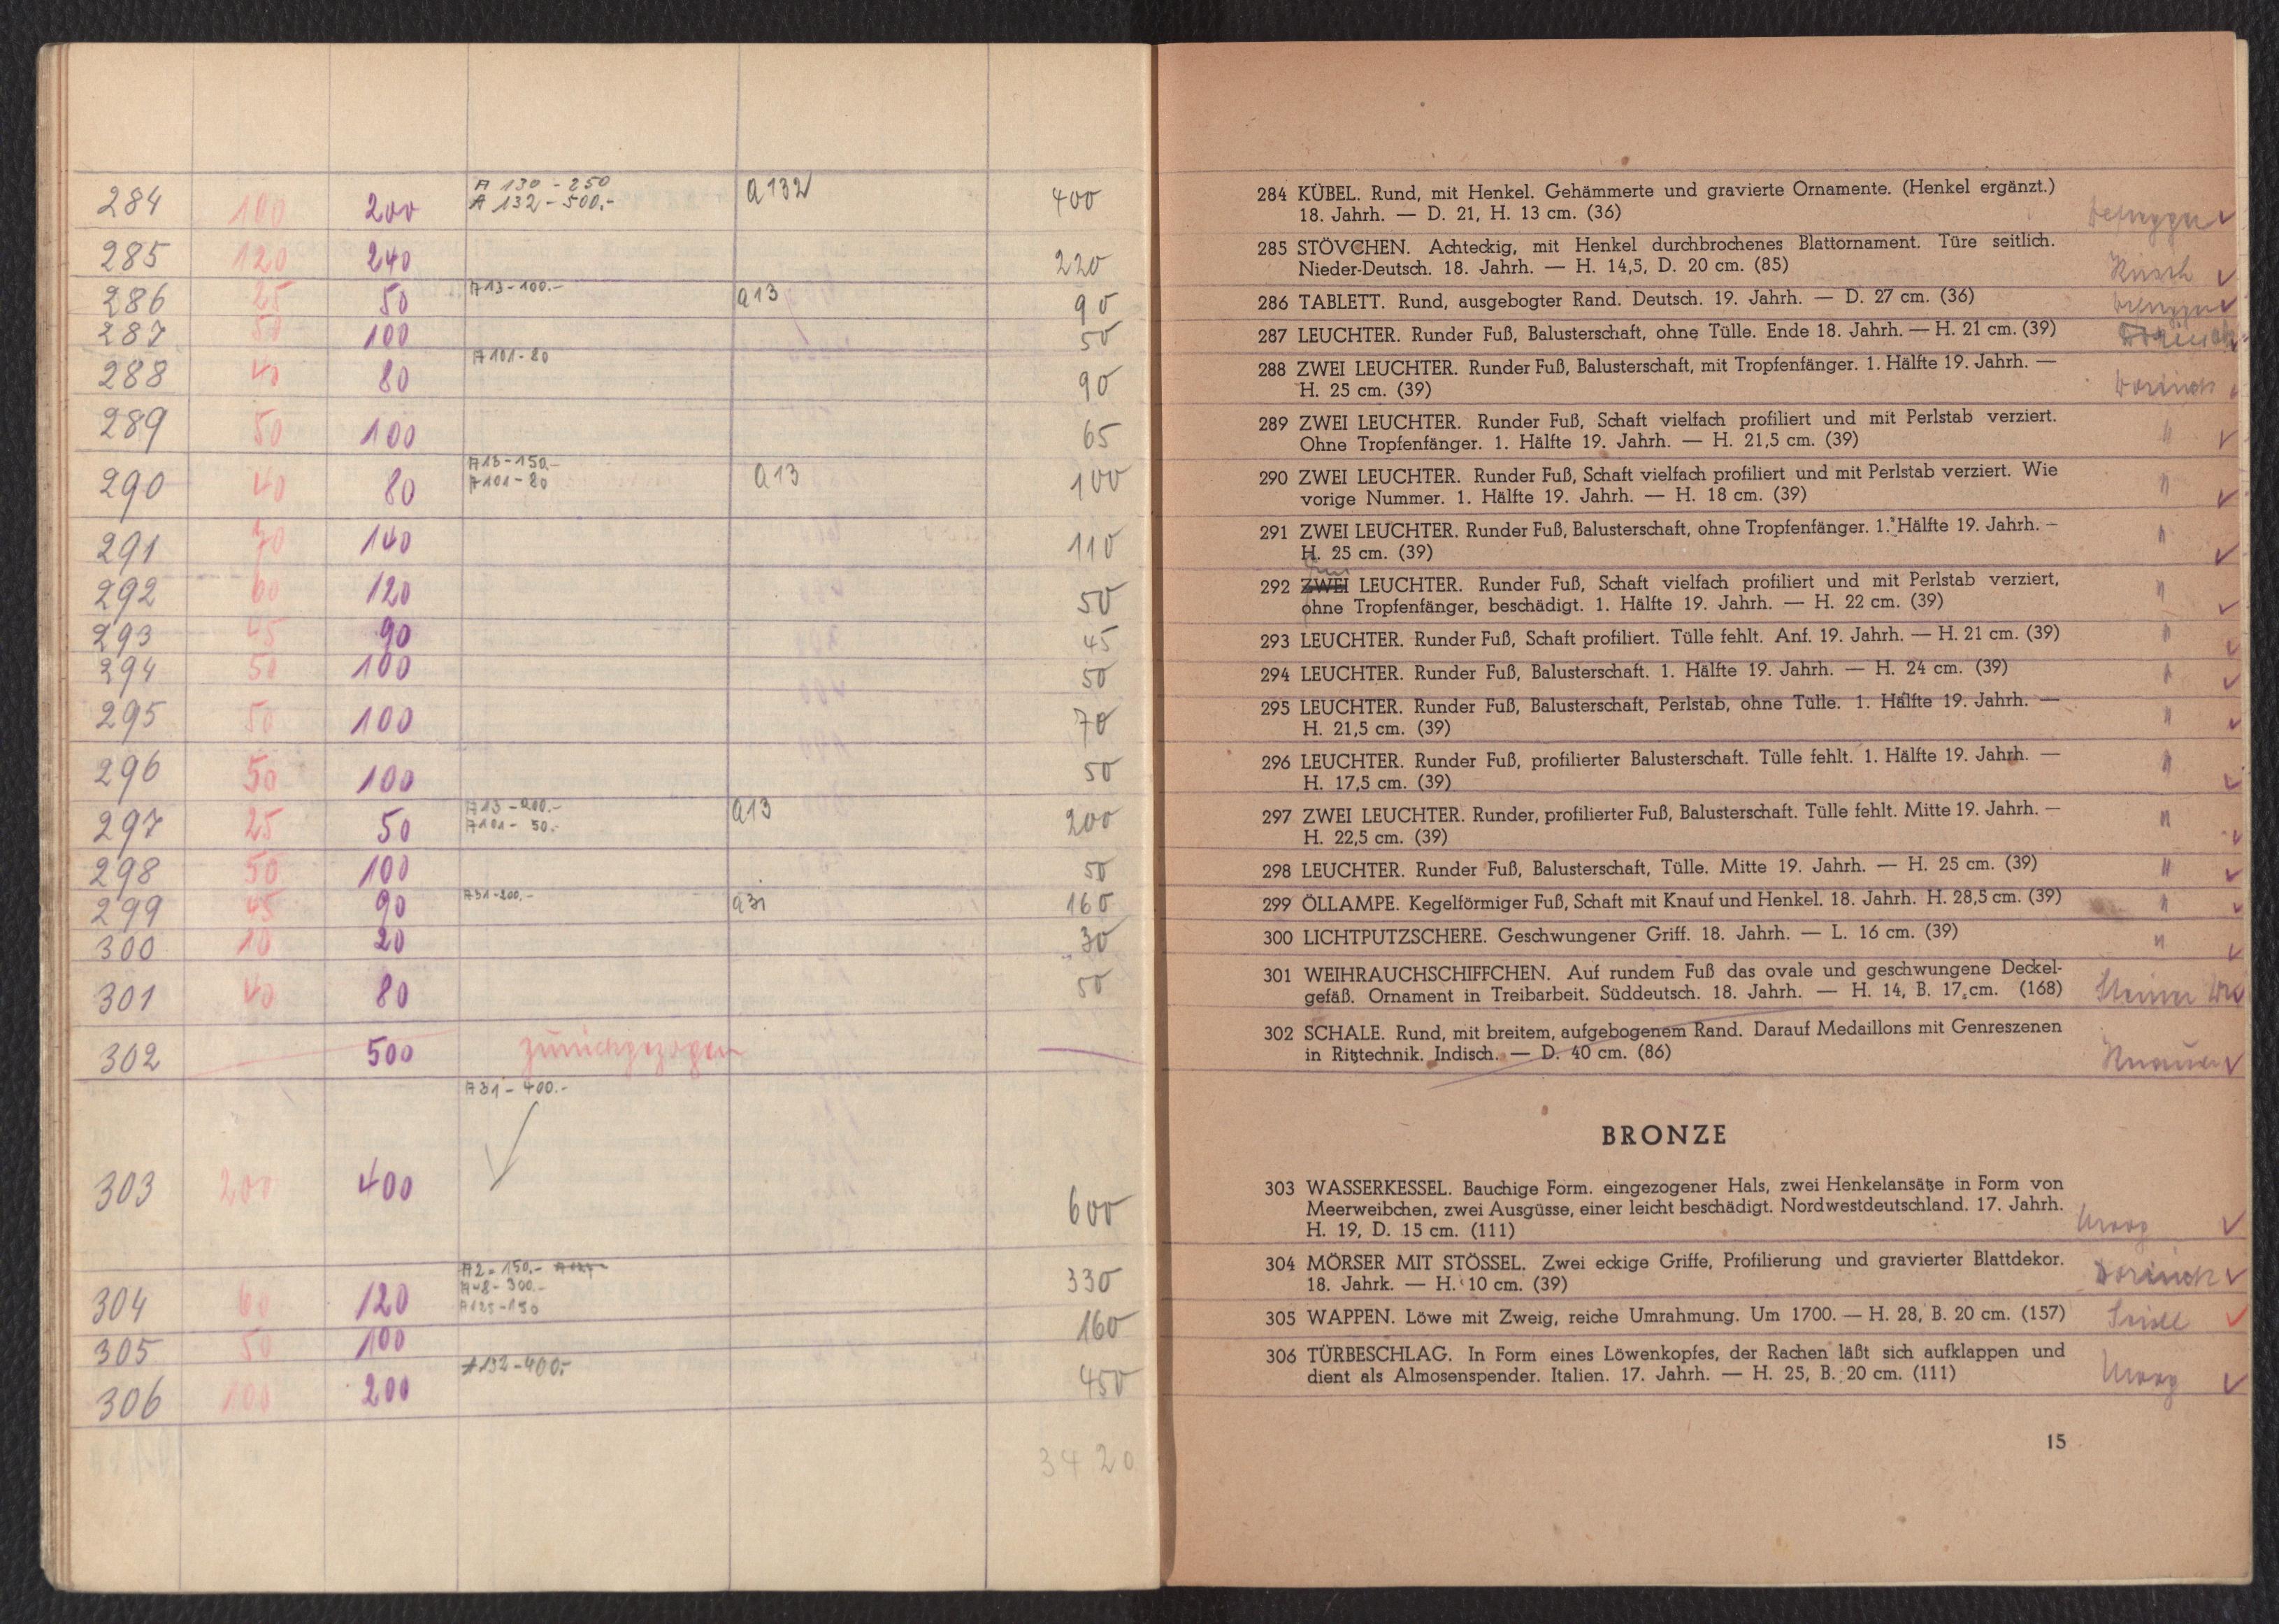 284 100 200 A 130 - 250 a 132 400
A 132 - 500.-
285 120 240 220
286 25 50 A13-100.- a13 90
287 50 100 50
288 40 80 A101-80 90
289 50 100 65
290 40 80 A13-150.- a13 100
A101-80
291 70 140 110
292 60 120 50
293 45 90 45
294 50 100 50
295 50 100 70
296 50 100 50
297 25 50 A13-200.- a13 200
A101- 50.-
298 50 100 50
299 45 90 A31-200.- a31 160
300 10 20 30
301 40 80 50
302 500 zurückgezogen
303 200 400 A31-400.- 600
304 60 120 A2-150.- 330
A48-300.-
A125-150
305 50 100 160
306 100 200 A132-400.- 450
3420
284 KÜBEL. Rund, mit Henkel. Gehämmerte und gravierte Ornamente. (Henkel ergänzt.)
18. Jahrh. — D. 21, H. 13 cm. (36)
285 STÖVCHEN. Achteckig, mit Henkel durchbrochenes Blattornament. Türe seitlich.
Nieder-Deutsch. 18. Jahrh. — H. 14,5, D. 20 cm. (85)
286 TABLETT. Rund, ausgebogter Rand. Deutsch. 19. Jahrh. — D. 27 cm. (36)
287 LEUCHTER. Runder Fuß, Balusterschaft, ohne Tülle. Ende 18. Jahrh. — H. 21 cm. (39)
288 ZWEI LEUCHTER. Runder Fuß, Balusterschaft, mit Tropfenfänger. 1. Hälfte 19. Jahrh. —
H. 25 cm. (39)
289 ZWEI LEUCHTER. Runder Fuß, Schaft vielfach profiliert und mit Perlstab verziert.
Ohne Tropfenfänger. 1. Hälfte 19. Jahrh. — H. 21,5 cm. (39) "
290 ZWEI LEUCHTER. Runder Fuß, Schaft vielfach profiliert und mit Perlstab verziert. Wie
vorige Nummer. 1. Hälfte 19. Jahrh. — H. 18 cm. (39) "
291 ZWEI LEUCHTER. Runder Fuß, Balusterschaft, ohne Tropfenfänger. 1. Hälfte 19. Jahrh. —
H. 25 cm. (39) "
292 ZWEI LEUCHTER. Runder Fuß, Schaft vielfach profiliert und mit Perlstab verziert,
ohne Tropfenfänger, beschädigt. 1. Hälfte 19. Jahrh. — H. 22 cm. (39) "
293 LEUCHTER. Runder Fuß, Schaft profiliert. Tülle fehlt. Anf. 19. Jahrh. — H. 21 cm. (39) "
294 LEUCHTER. Runder Fuß, Balusterschaft. 1. Hälfte 19. Jahrh. — H. 24 cm. (39) "
295 LEUCHTER. Runder Fuß, Balusterschaft, Perlstab, ohne Tülle. 1. Hälfte 19. Jahrh. —
H. 21,5 cm. (39) "
296 LEUCHTER. Runder Fuß, profilierter Balusterschaft. Tülle fehlt. 1. Hälfte 19. Jahrh. —
H. 17,5 cm. (39) "
297 ZWEI LEUCHTER. Runder, profilierter Fuß, Balusterschaft. Tülle fehlt. Mitte 19. Jahrh. —
H. 22,5 cm. (39) "
298 LEUCHTER. Runder Fuß, Balusterschaft, Tülle. Mitte 19. Jahrh. — H. 25 cm. (39) "
299 ÖLLAMPE. Kegelförmiger Fuß, Schaft mit Knauf und Henkel. 18. Jahrh. H. 28,5 cm. (39) "
300 LICHTPUTZSCHERE. Geschwungener Griff. 18. Jahrh. — L. 16 cm. (39) "
301 WEIHRAUCHSCHIFFCHEN. Auf rundem Fuß das ovale und geschwungene Deckel-
gefäß. Ornament in Treibarbeit. Süddeutsch. 18. Jahrh. — H. 14, B. 17 cm. (168)
302 SCHALE. Rund, mit breitem, aufgebogenem Rand. Darauf Medaillons mit Genreszenen
in Ritztechnik. Indisch. — D. 40 cm. (86)
BRONZE
303 WASSERKESSEL. Bauchige Form. eingezogener Hals, zwei Henkelansätze in Form von
Meerweibchen, zwei Ausgüsse, einer leicht beschädigt. Nordwestdeutschland. 17. Jahrh.
H. 19, D. 15 cm. (111)
304 MÖRSER MIT STÖSSEL. Zwei eckige Griffe, Profilierung und gravierter Blattdekor.
18. Jahrk. — H. 10 cm. (39)
305 WAPPEN. Löwe mit Zweig, reiche Umrahmung. Um 1700. — H. 28, B. 20 cm. (157)
306 TÜRBESCHLAG. In Form eines Löwenkopfes, der Rachen läßt sich aufklappen und
dient als Almosenspender. Italien. 17. Jahrh. — H. 25, B. 20 cm. (111)
15